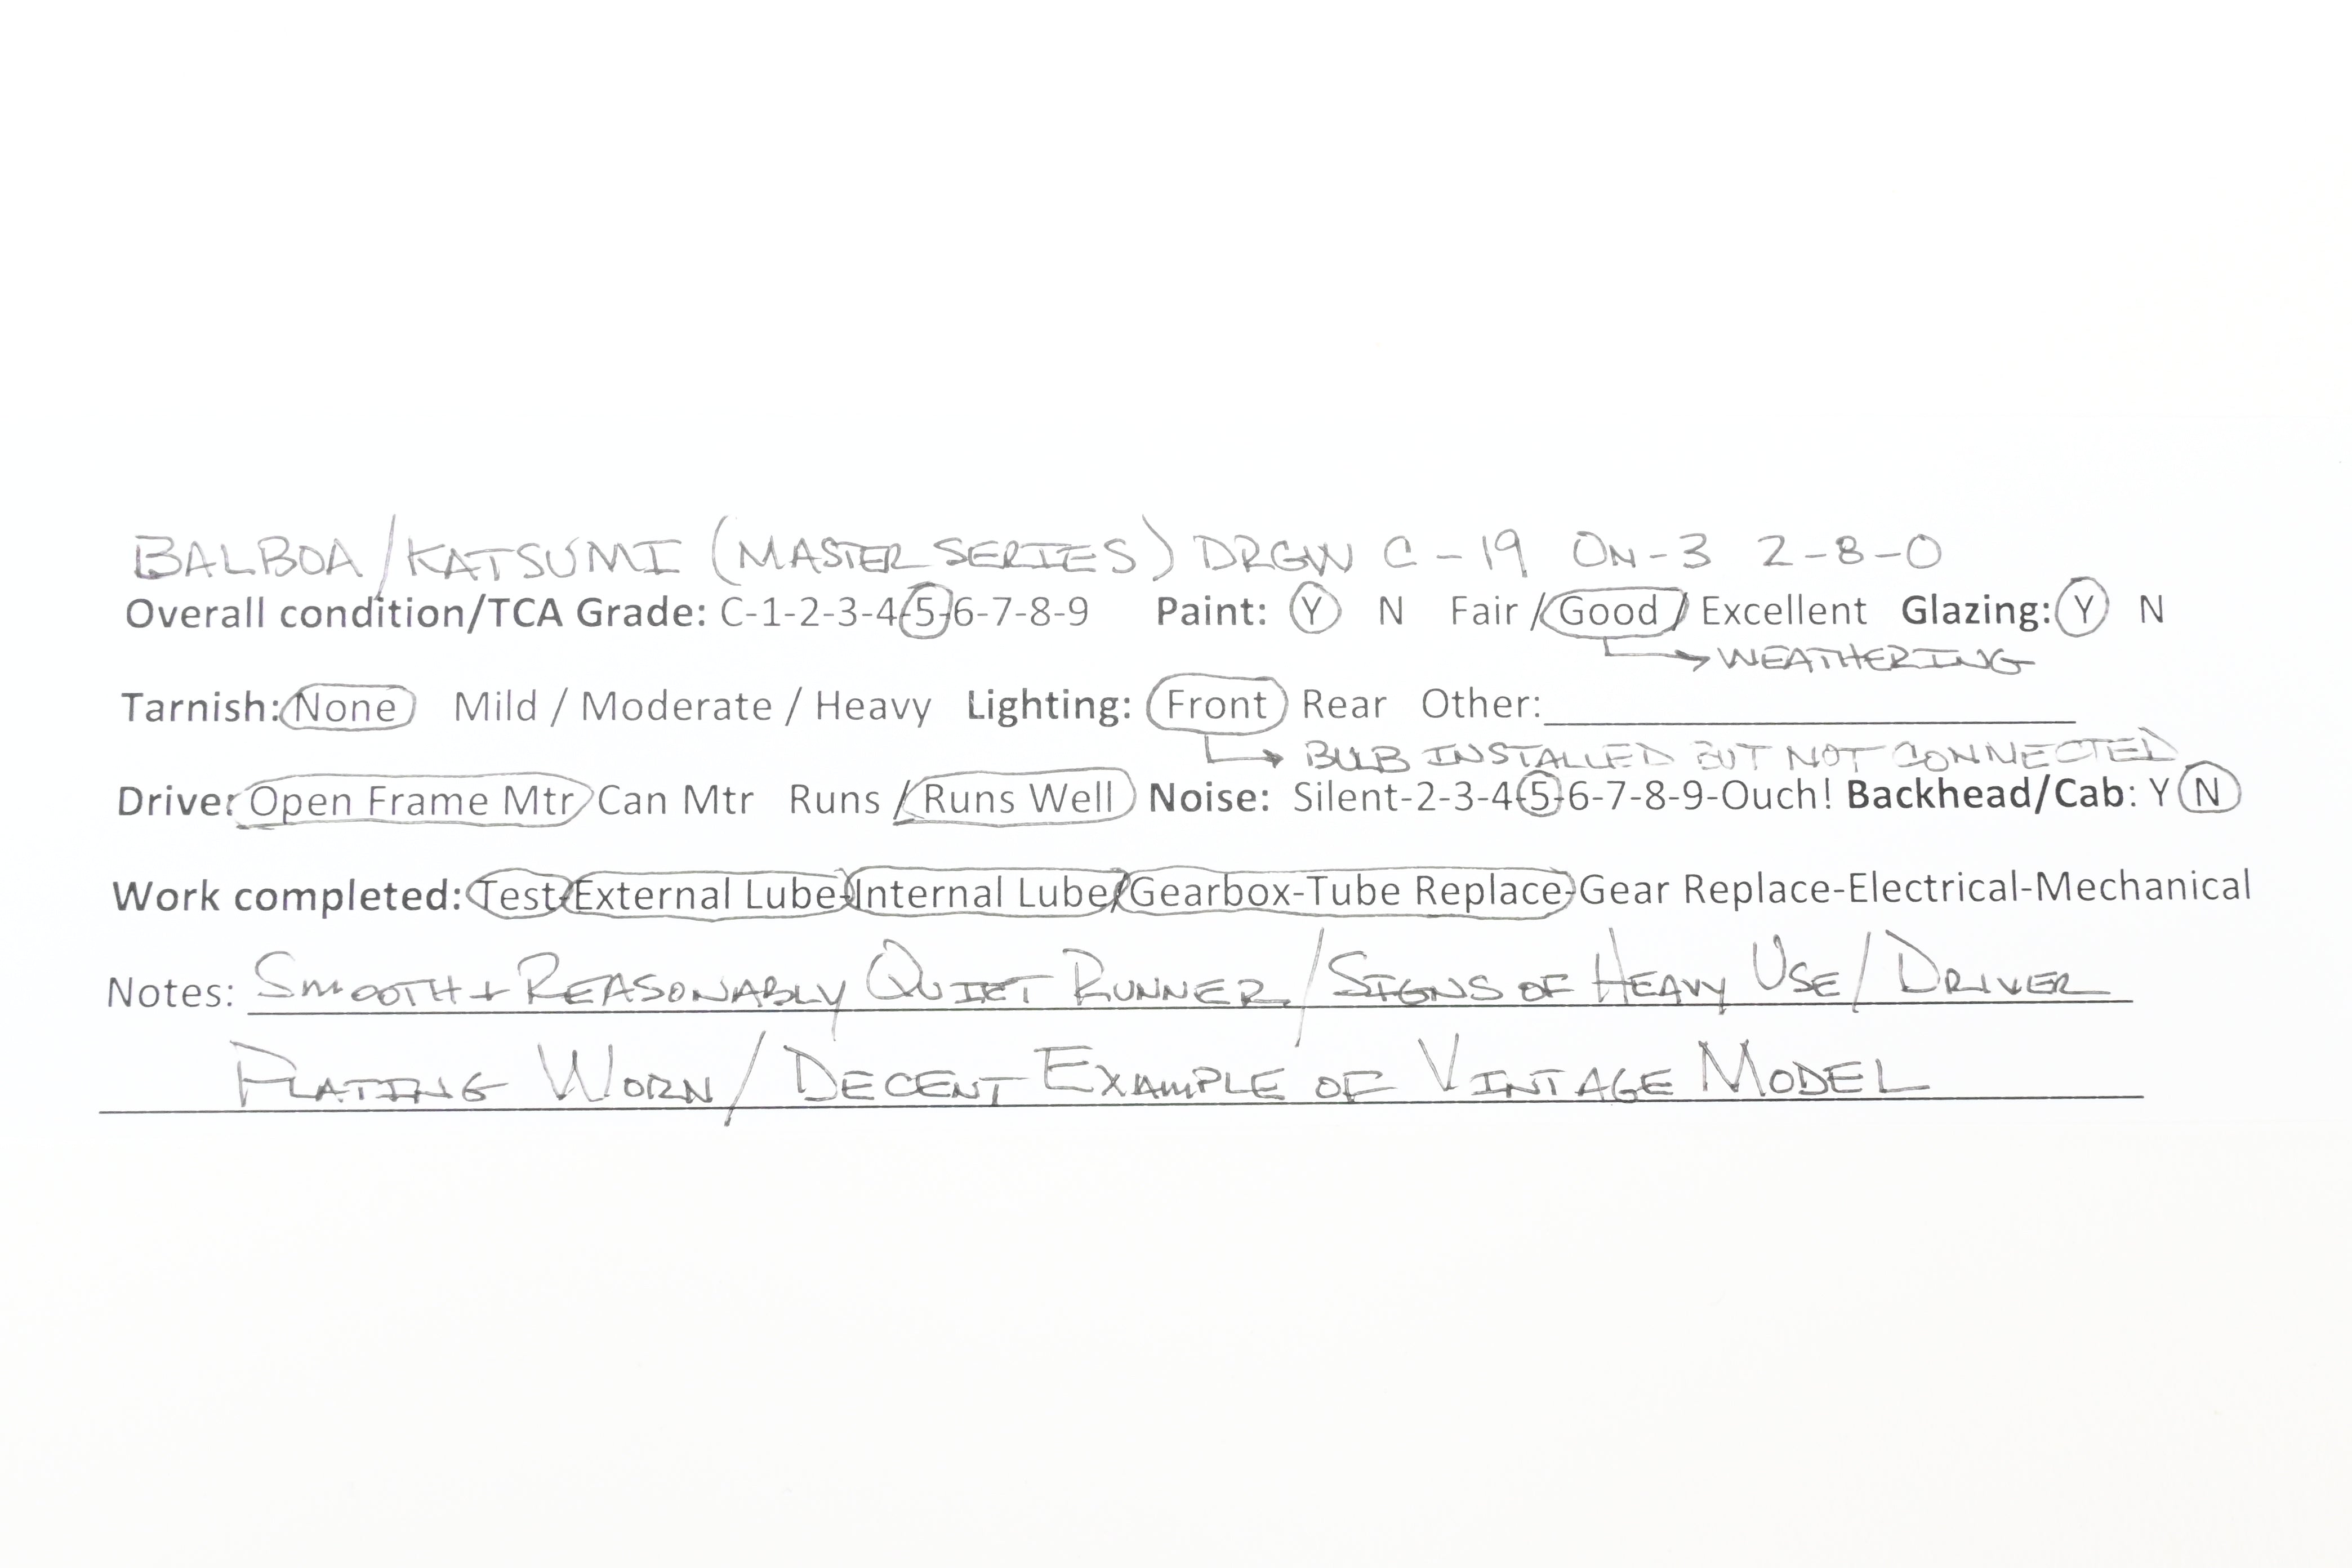 BALBOA/KATSUMI (MASTER SERIES) DRGW C-19 ON-3 2-8-0
Overall condition/TCA Grade: C-1-2-3-4-5-6-7-8-9 Paint: Y N Fair / Good / Excellent Glazing: Y N
WEATHERING
Tarnish: None Mild / Moderate / Heavy Lighting: Front Rear Other:
BULB INSTALLED BUT NOT CONNECTED
Driver Open Frame Mtr Can Mtr Runs / Runs Well Noise: Silent-2-3-4-5-6-7-8-9-Ouch! Backhead/Cab: Y N
Work completed: Test-External Lube-Internal Lube/Gearbox-Tube Replace-Gear Replace-Electrical-Mechanical
Notes: SMOOTH + REASONABLY QUIET RUNNER/SIGNS OF HEAVY USE/DRIVER
PLATING WORN/DECENT EXAMPLE OF VINTAGE MODEL